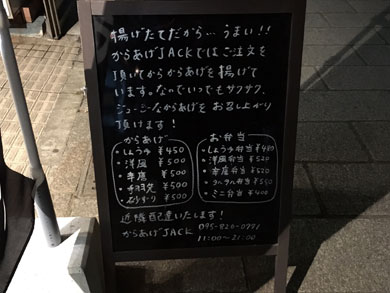 揚げたてだから… うまい!!
からあげJACKではご注文を
頂いてからからあげを揚げて
います。なのでいつでもサクサク、
ジューシーなからあげをお召し上がり
頂けます!
からあげ
・しょうゆ ¥450
・洋風 ¥500
・辛唐 ¥500
・チリマヨ ¥500
・砂ずり ¥500
お弁当
・しょうゆ弁当 ¥480
・洋風弁当 ¥520
・辛唐弁当 ¥520
弁当 ¥550
・ミニ弁当 ¥400
近隣配達いたします!
からあげJACK 095-820-0971
11:00~21:00